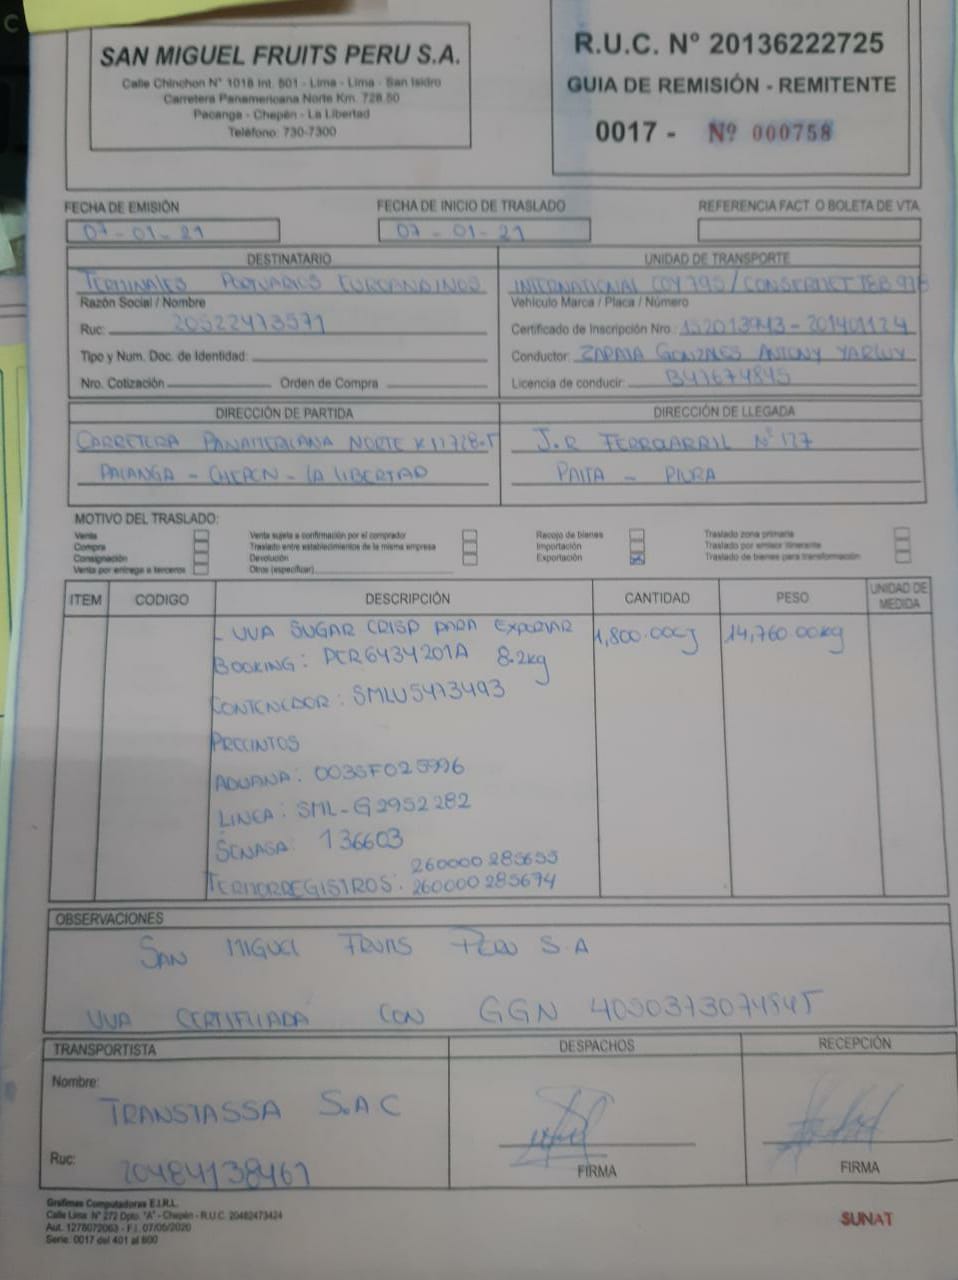 SAN MIGUEL FRUITS PERU S.A.
Calle Chinchon N° 1018 Int. 501 - Lima - Lima - San Isidro
Carretera Panamericana Norte Km. 728.50
Pacanga - Chepén - La Libertad
Teléfono: 730-7300
R.U.C. N° 20136222725
GUIA DE REMISIÓN - REMITENTE
0017 - Nº 000758
FECHA DE EMISIÓN
07-01-21
FECHA DE INICIO DE TRASLADO
07-01-21
REFERENCIA FACT. O BOLETA DE VTA.
DESTINATARIO
TERMINALES PORTUARIOS EUROANDINOS
Razón Social / Nombre
Ruc: 20522473571
Tipo y Num. Doc. de Identidad:
Nro. Cotización Orden de Compra
UNIDAD DE TRANSPORTE
INTERNATIONAL COY 795 /
Vehículo Marca / Placa / Número
Certificado de Inscripción Nro.: 152013943 - 201401124
Conductor: ZAPATA GONZALES ANTONY
Licencia de conducir: B47674845
DIRECCIÓN DE PARTIDA
CARRETERA PANAMERICANA NORTE K11728.5
PACANGA - CHEPEN - LA LIBERTAD
DIRECCIÓN DE LLEGADA
J.R FERROARRIL N° 127
PAITA - PIURA
MOTIVO DEL TRASLADO:
Venta
Compra
Consignación
Venta por entrega a terceros
Venta sujeta a confirmación por el comprador
Traslado entre establecimientos de la misma empresa
Devolución
Otros (especificar)
Recojo de bienes
Importación
Exportación
Traslado zona primaria
Traslado por emisor itinerante
Traslado de bienes para transformación
ITEM CODIGO DESCRIPCIÓN CANTIDAD PESO UNIDAD DE MEDIDA
- UVA SUGAR CRISP PARA EXPORTAR 1,800.00CJ 14,760.00kg
BOOKING: PCR6434201A 8.2kg
CONTENEDOR: SMLU5473493
PRECINTOS
ADUANA: 003SF025996
LINEA: SML-G2952282
SENASA: 136603
260000285655
TERMORREGISTROS: 260000285674
OBSERVACIONES
SAN MIGUEL FRUIS PERU S.A
UVA CERTIFICADA CON GGN 4050373074845
TRANSPORTISTA
Nombre:
TRANSTASSA S.A C
Ruc:
20484138461
DESPACHOS
FIRMA
RECEPCIÓN
FIRMA
Grafimas Computadoras E.I.R.L.
Calle Lima N° 272 Dpto. "A" - Chepén - R.U.C. 20482473424
Aut. 1278072063 - F.I. 07/05/2020
Serie: 0017 del 401 al 800
SUNAT